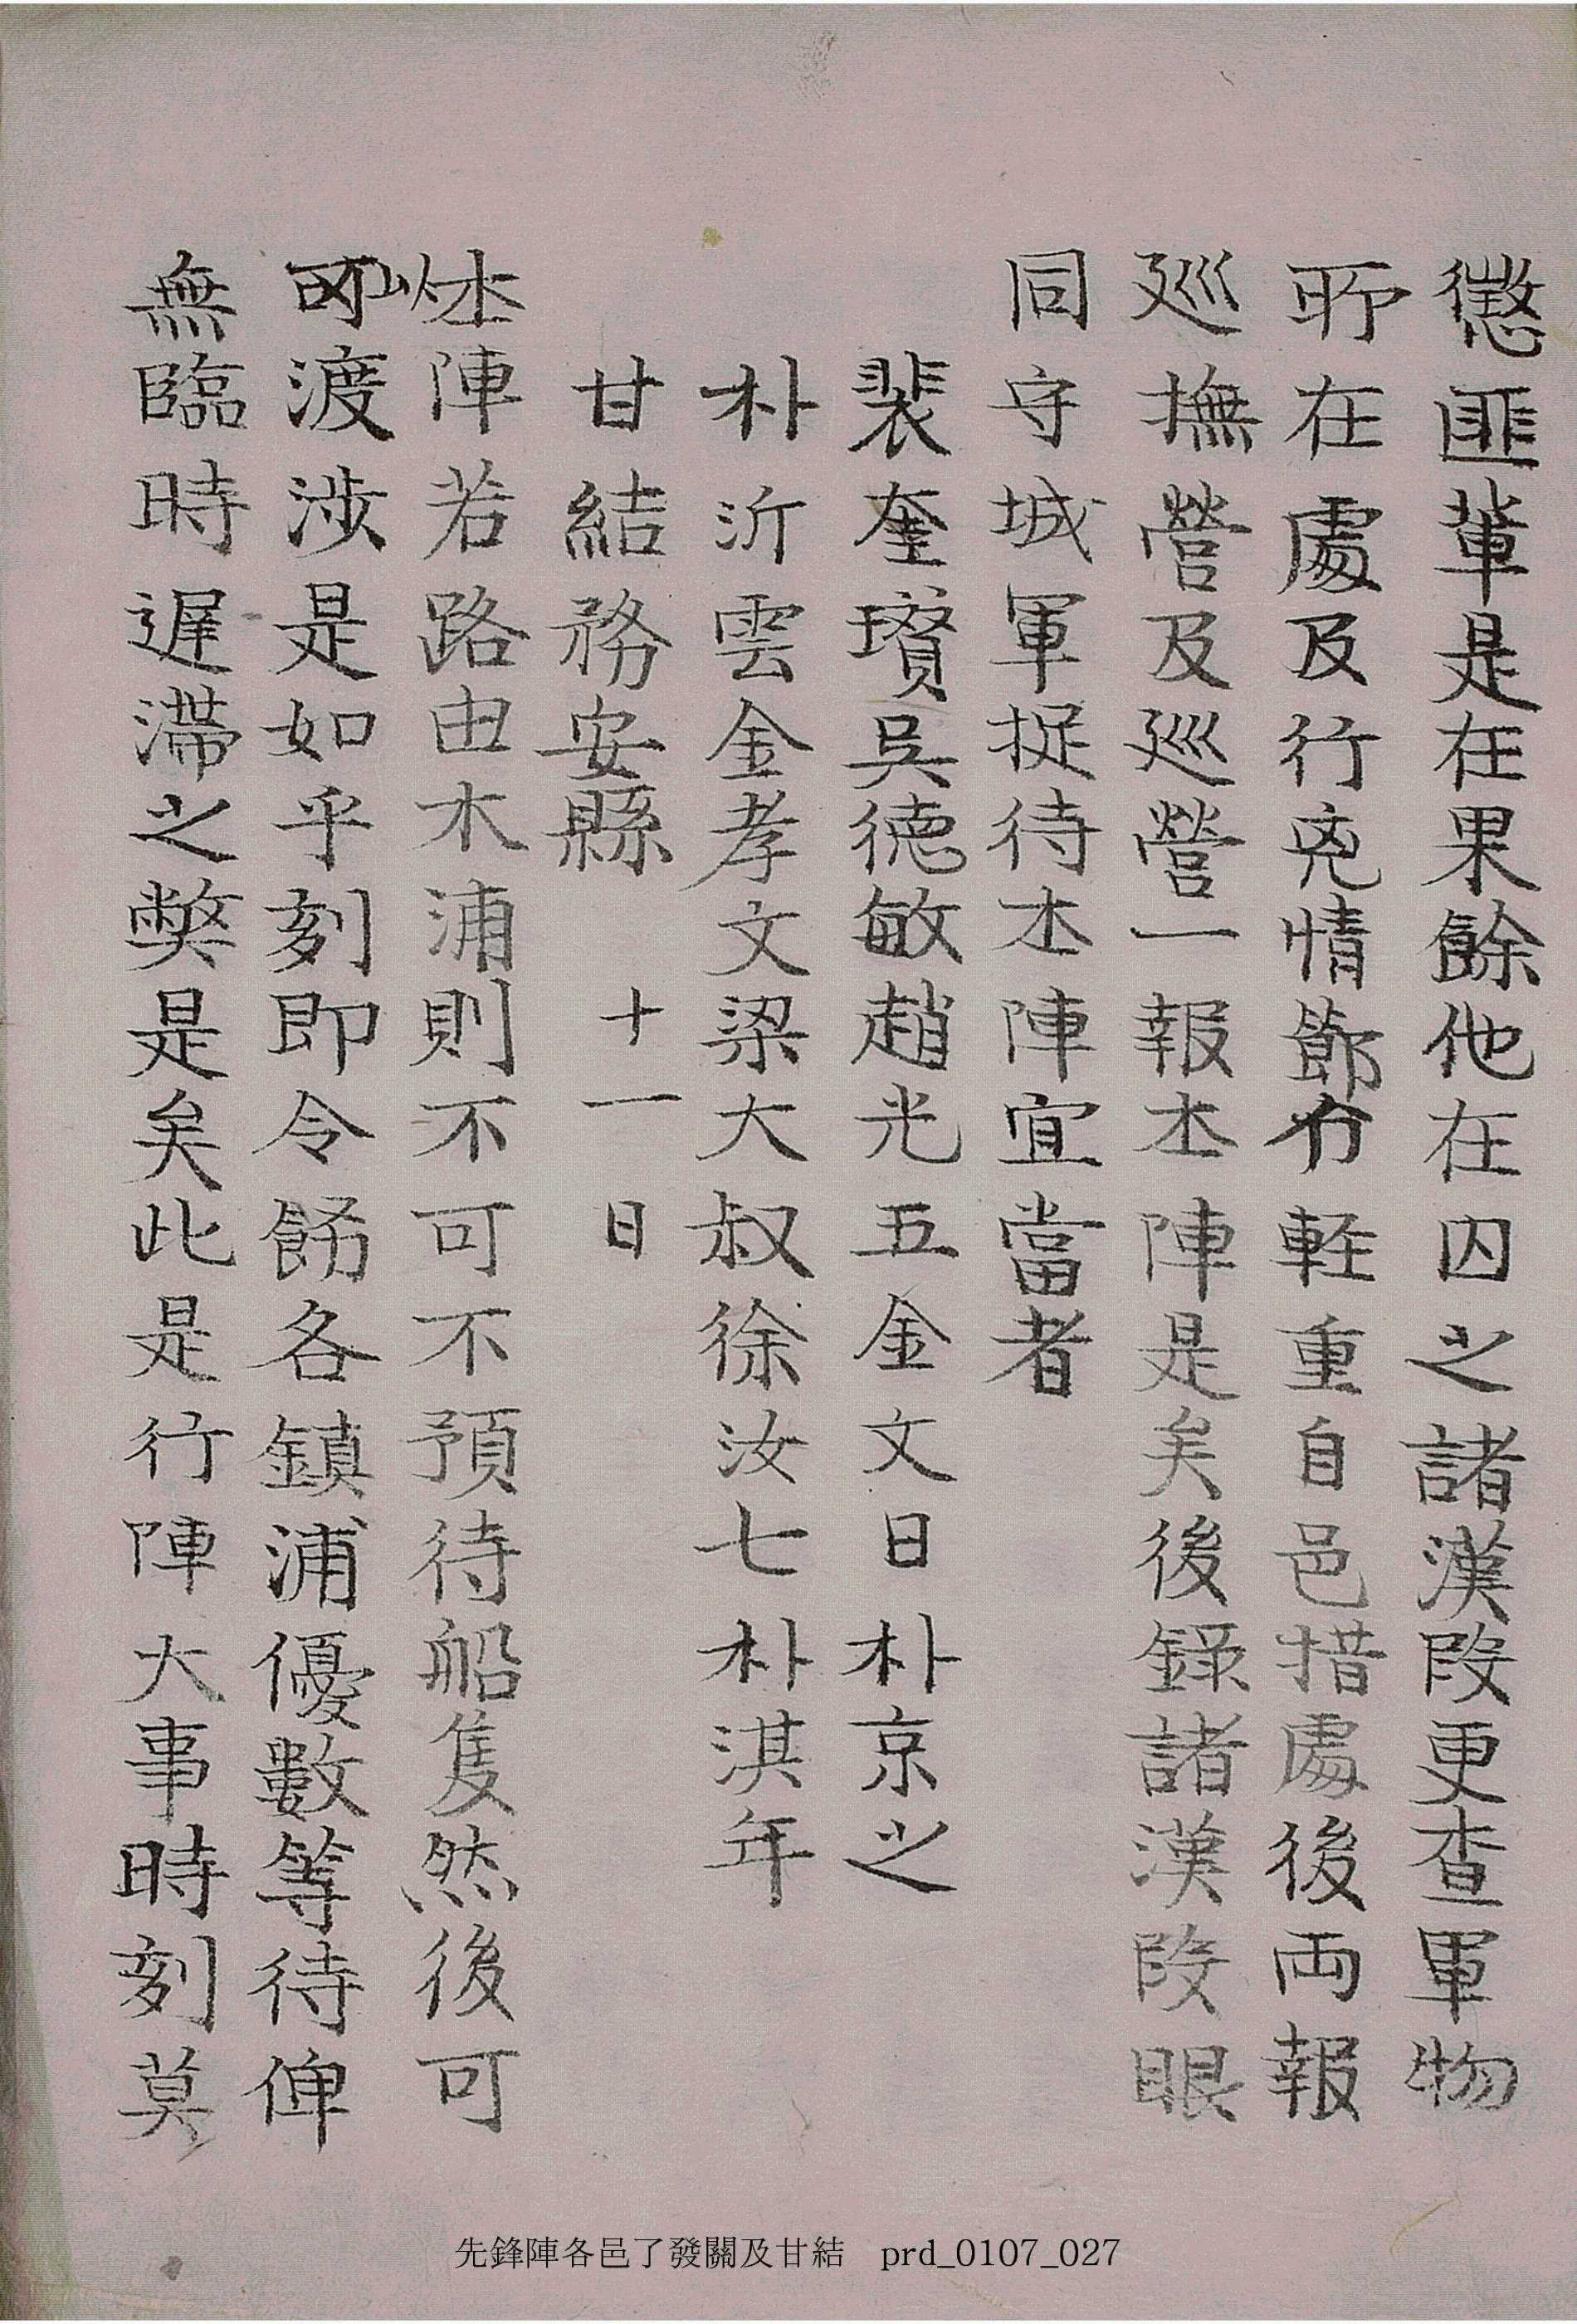 懲匪軰是在果餘他在囚之諸漢段更查軍物
所在處及行兇情節分輕重自邑措處後両報
巡撫營及巡營一報本陣是矣後錄諸漢段眼
同守城軍捉待本陣宜當者
裴奎璸吳德敏趙光五金文日朴京之
朴沂雲金孝文梁大叔徐汝七朴淇年
甘結務安縣 十一日
本陣若路由木浦則不可不預待船隻然後可
渡涉是如乎刻即令飭各鎮浦優數等待俾
無臨時遲滯之弊是矣此是行陣大事時刻莫
先鋒陣各邑了發關及甘結 prd_0107_027